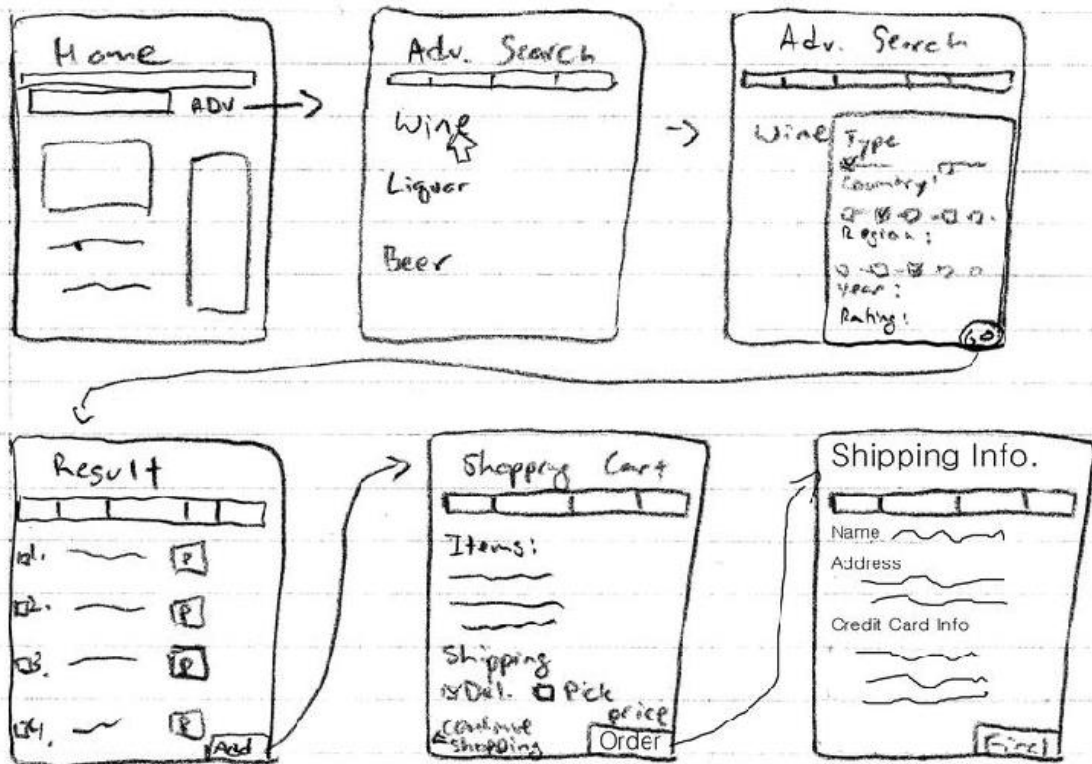 Home
ADV
Adv. Search
Wine
Liquor
Beer
Adv. Search
Wine
Type
Country:
Region:
Year:
Rating:
GO
Result
1.
P
2.
P
3.
P
4.
P
Add
Shopping Cart
Items:
Shipping
Del. Pick
price
continue
shopping
Order
Shipping Info.
Name
Address
Credit Card Info